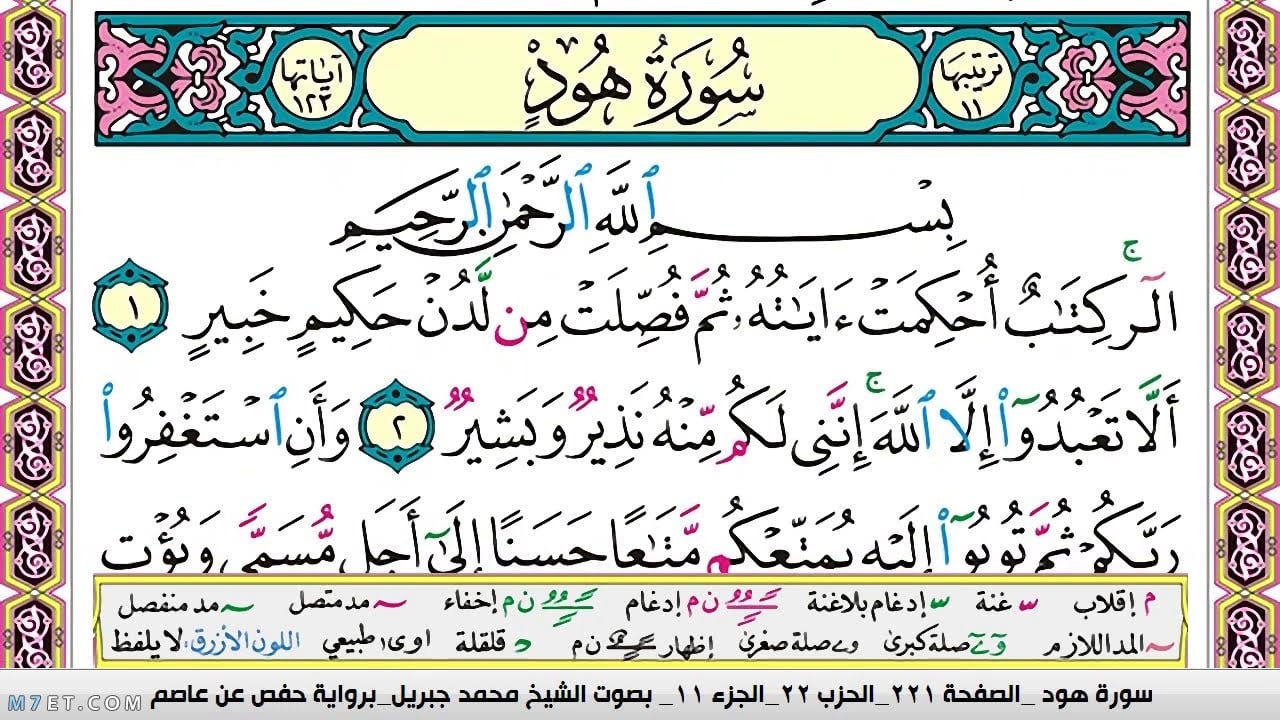 سُورَةُ هُودٍ
ترتيبها ١١
آياتها ١٢٣
بِسْمِ ٱللَّهِ ٱلرَّحْمَٰنِ ٱلرَّحِيمِ
الٓر ۚ كِتَٰبٌ أُحْكِمَتْ ءَايَٰتُهُۥ ثُمَّ فُصِّلَتْ مِن لَّدُنْ حَكِيمٍ خَبِيرٍ ١
أَلَّا تَعْبُدُوٓا۟ إِلَّا ٱللَّهَ ۚ إِنَّنِى لَكُم مِّنْهُ نَذِيرٌ وَبَشِيرٌ ٢ وَأَنِ ٱسْتَغْفِرُوا۟
رَبَّكُمْ ثُمَّ تُوبُوٓا۟ إِلَيْهِ يُمَتِّعْكُم مَّتَٰعًا حَسَنًا إِلَىٰٓ أَجَلٍ مُّسَمًّى وَيُؤْتِ
م إقلاب غنة إدغام بلاغنة ن م إدغام ن م إخفاء مد متصل مد منفصل
المد اللازم صلة كبرى صلة صغرى إظهار ن م قلقلة د اوى طبيعي اللون الأزرق: لا يلفظ
سورة هود _الصفحة ٢٢١_الحزب ٢٢_الجزء ١١_ بصوت الشيخ محمد جبريل_برواية حفص عن عاصم
M7ET.COM